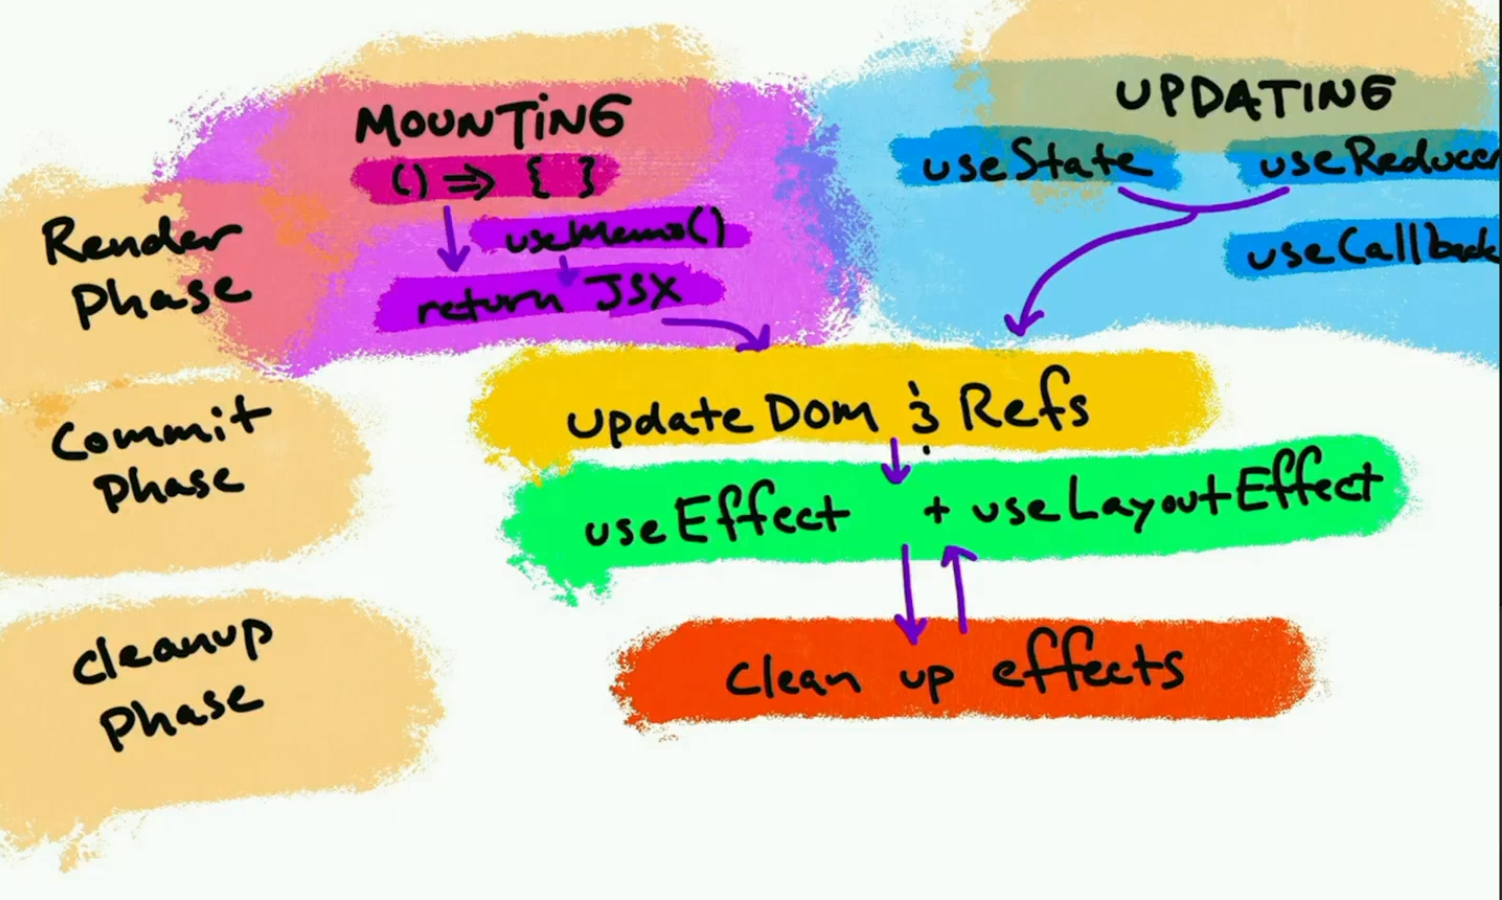 MOUNTING
() => { }
useMemo()
return JSX
UPDATING
useState
useReducer
useCallback
Render
Phase
Commit
Phase
Update Dom & Refs
useEffect + useLayoutEffect
Cleanup
Phase
Clean up effects